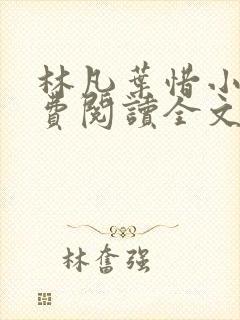 林凡葉惜小
費閱讀全文
林奮強